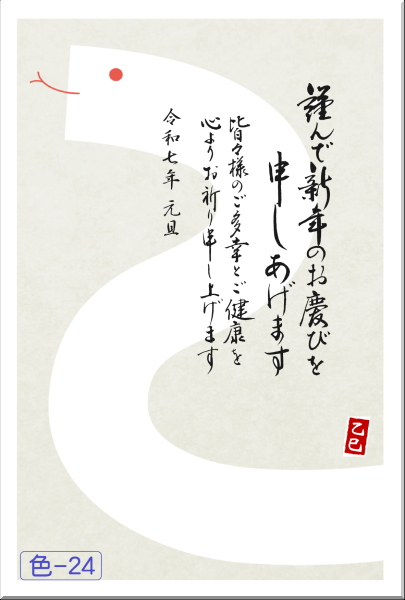 謹んで新年のお慶びを
申しあげます
皆々様のご多幸とご健康を
心よりお祈り申し上げます
令和七年 元旦
乙巳
色-24